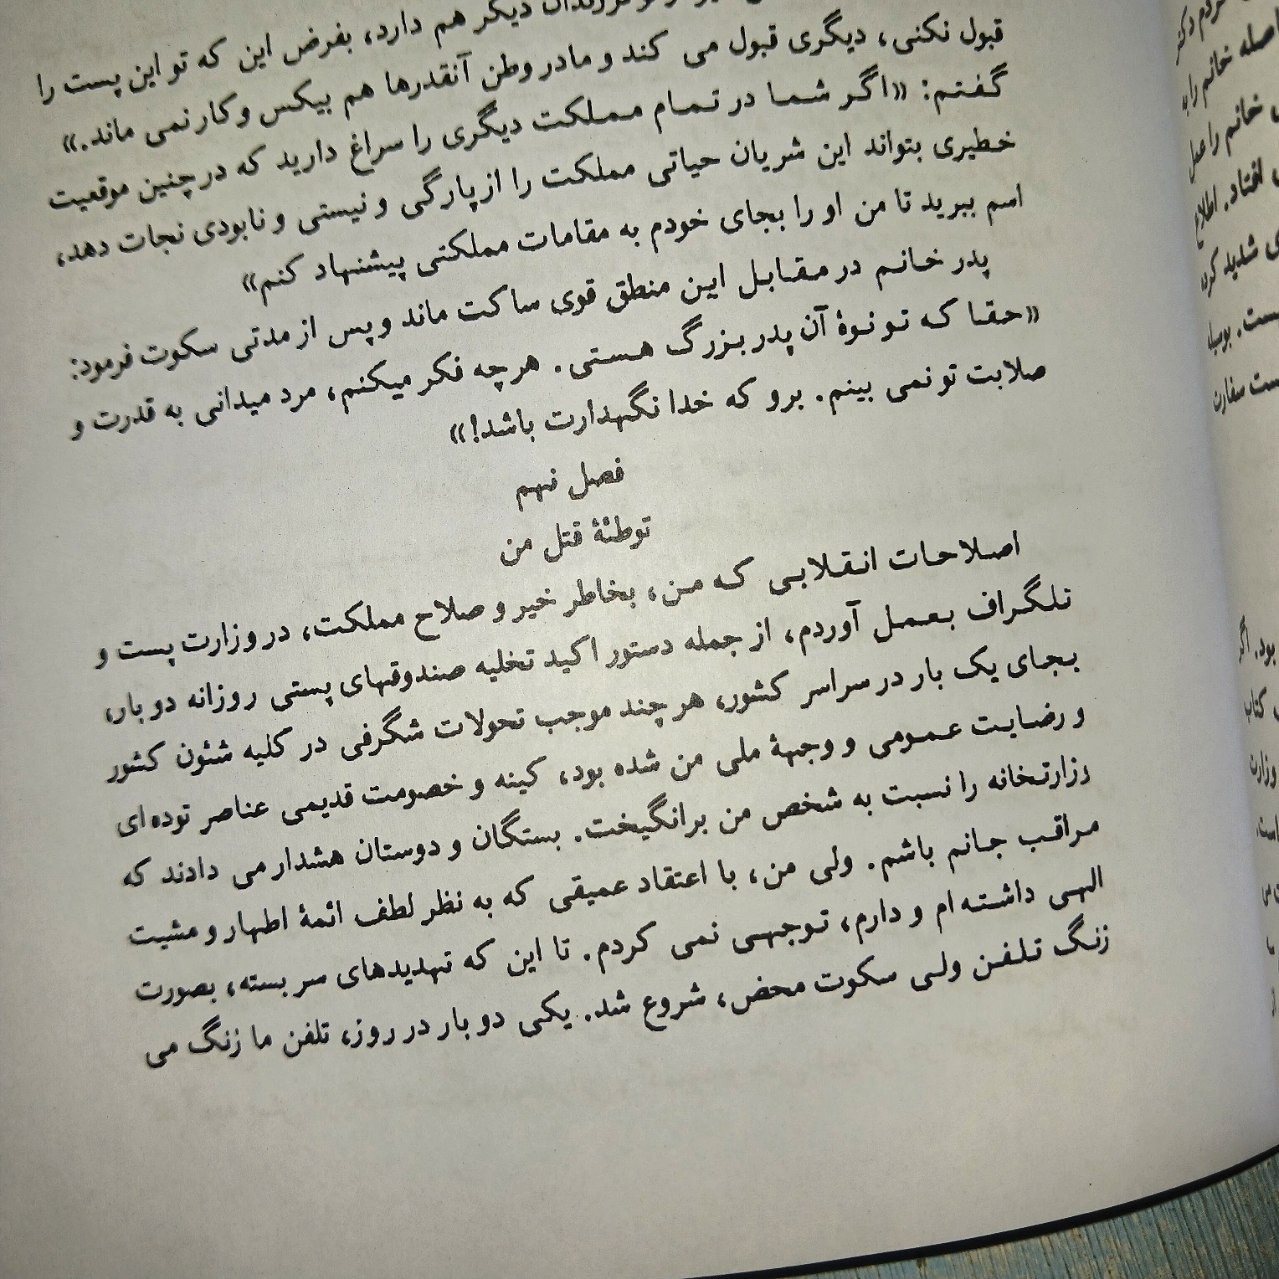 دیگر هم دارد، بفرض این که تو این پست را
قبول نکنی، دیگری قبول می کند و مادر وطن آنقدرها هم بیکس و کار نمی ماند.»
گفتم: «اگر شما در تمام مملکت دیگری را سراغ دارید که در چنین موقعیت
خطیری بتواند این شریان حیاتی مملکت را از پارگی و نیستی و نابودی نجات دهد،
اسم ببرید تا من او را بجای خودم به مقامات مملکتی پیشنهاد کنم»
پدر خانم در مقابل این منطق قوی ساکت ماند و پس از مدتی سکوت فرمود:
«حقا که تو نوۀ آن پدر بزرگ هستی. هر چه فکر میکنم، مرد میدانی به قدرت و
صلابت تو نمی بینم. برو که خدا نگهدارت باشد!»
فصل نهم
توطئۀ قتل من
اصلاحات انقلابی که من، بخاطر خیر و صلاح مملکت، در وزارت پست و
تلگراف بعمل آوردم، از جمله دستور اکید تخلیه صندوقهای پستی روزانه دو بار،
بجای یک بار در سراسر کشور، هر چند موجب تحولات شگرفی در کلیه شئون کشور
و رضایت عمومی و وجهۀ ملی من شده بود، کینه و خصومت قدیمی عناصر توده ای
وزارتخانه را نسبت به شخص من برانگیخت. بستگان و دوستان هشدار می دادند که
مراقب جانم باشم. ولی من، با اعتقاد عمیقی که به نظر لطف ائمۀ اطهار و مشیت
الهی داشته ام و دارم، توجهی نمی کردم. تا این که تهدیدهای سر بسته، بصورت
زنگ تلفن ولی سکوت محض، شروع شد. یکی دو بار در روز، تلفن ما زنگ می
اصله خانم را به
خانم را عمل
افتاد. اطلاع
ی شدید کرده
ست. بوسیله
ست سفارت
بود. اگر
کتاب
وزارت
است،